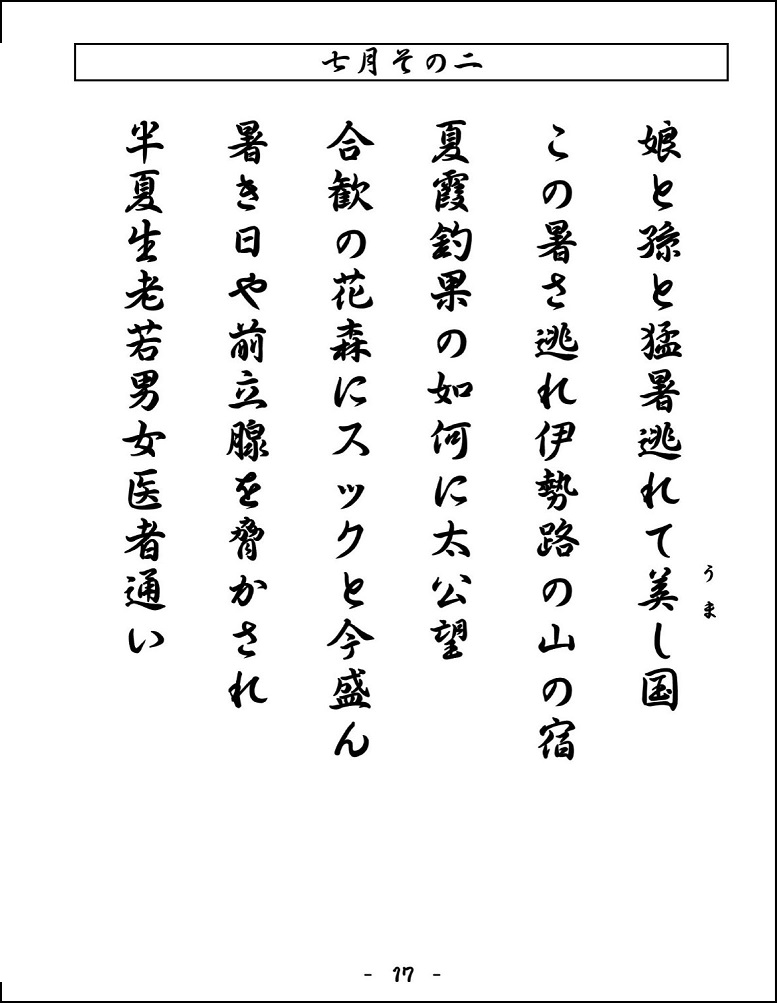 七月その二
娘と孫と猛暑逃れて美し国
うま
この暑さ逃れ伊勢路の山の宿
夏霞釣果の如何に太公望
合歓の花森にスックと今盛ん
暑き日や前立腺を脅かされ
半夏生老若男女医者通い
- 17 -